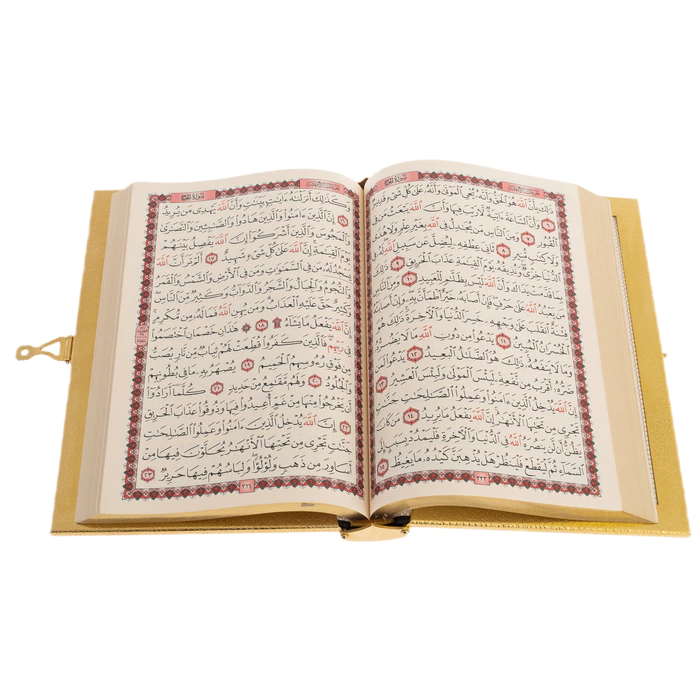 الجزء السابع عشر
سورة الحج
ذَٰلِكَ بِأَنَّ ٱللَّهَ هُوَ ٱلْحَقُّ وَأَنَّهُۥ يُحْىِ ٱلْمَوْتَىٰ وَأَنَّهُۥ عَلَىٰ كُلِّ شَىْءٍ قَدِيرٌ
٦ وَأَنَّ ٱلسَّاعَةَ ءَاتِيَةٌ لَّا رَيْبَ فِيهَا وَأَنَّ ٱللَّهَ يَبْعَثُ مَن فِى
ٱلْقُبُورِ ٧ وَمِنَ ٱلنَّاسِ مَن يُجَٰدِلُ فِى ٱللَّهِ بِغَيْرِ عِلْمٍ وَلَا هُدًى
وَلَا كِتَٰبٍ مُّنِيرٍ ٨ ثَانِىَ عِطْفِهِۦ لِيُضِلَّ عَن سَبِيلِ ٱللَّهِ لَهُۥ فِى
ٱلدُّنْيَا خِزْىٌ وَنُذِيقُهُۥ يَوْمَ ٱلْقِيَٰمَةِ عَذَابَ ٱلْحَرِيقِ ٩ ذَٰلِكَ
بِمَا قَدَّمَتْ يَدَاكَ وَأَنَّ ٱللَّهَ لَيْسَ بِظَلَّٰمٍ لِّلْعَبِيدِ ١٠ وَمِنَ ٱلنَّاسِ
مَن يَعْبُدُ ٱللَّهَ عَلَىٰ حَرْفٍ فَإِنْ أَصَابَهُۥ خَيْرٌ ٱطْمَأَنَّ بِهِۦ وَإِنْ أَصَابَتْهُ
فِتْنَةٌ ٱنقَلَبَ عَلَىٰ وَجْهِهِۦ خَسِرَ ٱلدُّنْيَا وَٱلْءَاخِرَةَ ذَٰلِكَ هُوَ
ٱلْخُسْرَانُ ٱلْمُبِينُ ١١ يَدْعُوا۟ مِن دُونِ ٱللَّهِ مَا لَا يَضُرُّهُۥ
وَمَا لَا يَنفَعُهُۥ ذَٰلِكَ هُوَ ٱلضَّلَٰلُ ٱلْبَعِيدُ ١٢ يَدْعُوا۟ لَمَن
ضَرُّهُۥٓ أَقْرَبُ مِن نَّفْعِهِۦ لَبِئْسَ ٱلْمَوْلَىٰ وَلَبِئْسَ ٱلْعَشِيرُ ١٣
إِنَّ ٱللَّهَ يُدْخِلُ ٱلَّذِينَ ءَامَنُوا۟ وَعَمِلُوا۟ ٱلصَّٰلِحَٰتِ جَنَّٰتٍ
تَجْرِى مِن تَحْتِهَا ٱلْأَنْهَٰرُ إِنَّ ٱللَّهَ يَفْعَلُ مَا يُرِيدُ ١٤ مَن كَانَ
يَظُنُّ أَن لَّن يَنصُرَهُ ٱللَّهُ فِى ٱلدُّنْيَا وَٱلْءَاخِرَةِ فَلْيَمْدُدْ بِسَبَبٍ إِلَى
ٱلسَّمَآءِ ثُمَّ لْيَقْطَعْ فَلْيَنظُرْ هَلْ يُذْهِبَنَّ كَيْدُهُۥ مَا يَغِيظُ ١٥
٣٣٣
الجزء السابع عشر
سورة الحج
وَكَذَٰلِكَ أَنزَلْنَٰهُ ءَايَٰتٍۭ بَيِّنَٰتٍ وَأَنَّ ٱللَّهَ يَهْدِى مَن يُرِيدُ
١٦ إِنَّ ٱلَّذِينَ ءَامَنُوا۟ وَٱلَّذِينَ هَادُوا۟ وَٱلصَّٰبِـِٔينَ وَٱلنَّصَٰرَىٰ
وَٱلْمَجُوسَ وَٱلَّذِينَ أَشْرَكُوٓا۟ إِنَّ ٱللَّهَ يَفْصِلُ بَيْنَهُمْ
يَوْمَ ٱلْقِيَٰمَةِ إِنَّ ٱللَّهَ عَلَىٰ كُلِّ شَىْءٍ شَهِيدٌ ١٧ أَلَمْ تَرَ أَنَّ ٱللَّهَ
يَسْجُدُ لَهُۥ مَن فِى ٱلسَّمَٰوَٰتِ وَمَن فِى ٱلْأَرْضِ وَٱلشَّمْسُ وَٱلْقَمَرُ
وَٱلنُّجُومُ وَٱلْجِبَالُ وَٱلشَّجَرُ وَٱلدَّوَآبُّ وَكَثِيرٌ مِّنَ ٱلنَّاسِ
وَكَثِيرٌ حَقَّ عَلَيْهِ ٱلْعَذَابُ وَمَن يُهِنِ ٱللَّهُ فَمَا لَهُۥ مِن مُّكْرِمٍ
إِنَّ ٱللَّهَ يَفْعَلُ مَا يَشَآءُ ۩ ١٨ هَٰذَانِ خَصْمَانِ ٱخْتَصَمُوا۟
فِى رَبِّهِمْ فَٱلَّذِينَ كَفَرُوا۟ قُطِّعَتْ لَهُمْ ثِيَابٌ مِّن نَّارٍ يُصَبُّ
مِن فَوْقِ رُءُوسِهِمُ ٱلْحَمِيمُ ١٩ يُصْهَرُ بِهِۦ مَا فِى بُطُونِهِمْ
وَٱلْجُلُودُ ٢٠ وَلَهُم مَّقَٰمِعُ مِنْ حَدِيدٍ ٢١ كُلَّمَآ أَرَادُوٓا۟
أَن يَخْرُجُوا۟ مِنْهَا مِنْ غَمٍّ أُعِيدُوا۟ فِيهَا وَذُوقُوا۟ عَذَابَ ٱلْحَرِيقِ
٢٢ إِنَّ ٱللَّهَ يُدْخِلُ ٱلَّذِينَ ءَامَنُوا۟ وَعَمِلُوا۟ ٱلصَّٰلِحَٰتِ
جَنَّٰتٍ تَجْرِى مِن تَحْتِهَا ٱلْأَنْهَٰرُ يُحَلَّوْنَ فِيهَا مِنْ
أَسَاوِرَ مِن ذَهَبٍ وَلُؤْلُؤًا وَلِبَاسُهُمْ فِيهَا حَرِيرٌ ٢٣
٣٣٤